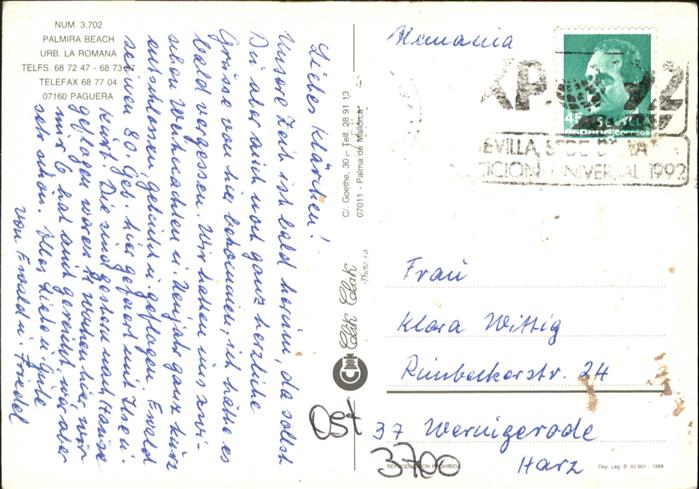 NUM. 3.702
PALMIRA BEACH
URB. LA ROMANA
TELFS. 68 72 47 - 68 73
TELEFAX 68 77 04
07160 PAGUERA
Liebes Klärchen!
Unsere Zeit ist bald herum, da sollst
Du aber auch noch ganz herzliche
Grüsse von hier bekommen, ich hätte es
bald vergessen. Wir haben uns zwi-
schen Weihnachten u. Neujahr ganz kurz
entschlossen, gebucht u. geflogen. Ewald
seinen 80. Geb. hier gefeiert mit Ilse u.
Kurt. Die sind gestern nach Hause
geflogen, waren 14 Wochen hier, wir
nur 6 hat auch gereicht, war aber
sehr schön. Alles Liebe u. Gute
von Ewald u. Friedel
C/. Goethe, 30 - Telf. 28 91 13
07011 - Palma de Mallorca
Clik Clak
Photo, s.a.
Alemania
45
ESPAÑA CORREOS
EXPO 92
SEVILLA
SEVILLA, SEDE DE LA
EXPOSICION UNIVERSAL 1992
Frau
Klara Wittig
Rimbeckerstr. 24
Ost 37 Wernigerode
3700 Harz
REPRODUCCION PROHIBIDA
Dep. Leg. B. 42.601 - 1988